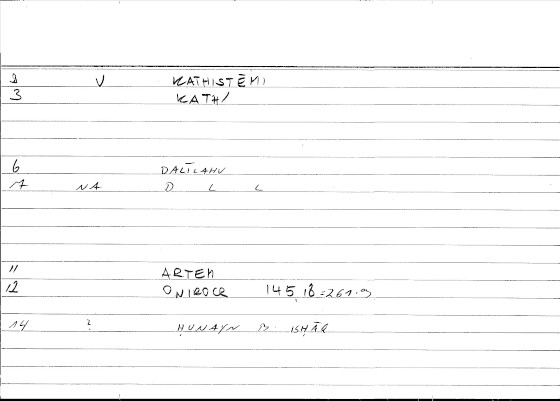 2 V KATHISTĒMI
3 KATH/
6 DALĪLAHU
7 NA D L L
11 ARTEM
12 ONIROCR 145,18=261.9
14 ? ḤUNAYN B. ISḤĀQ